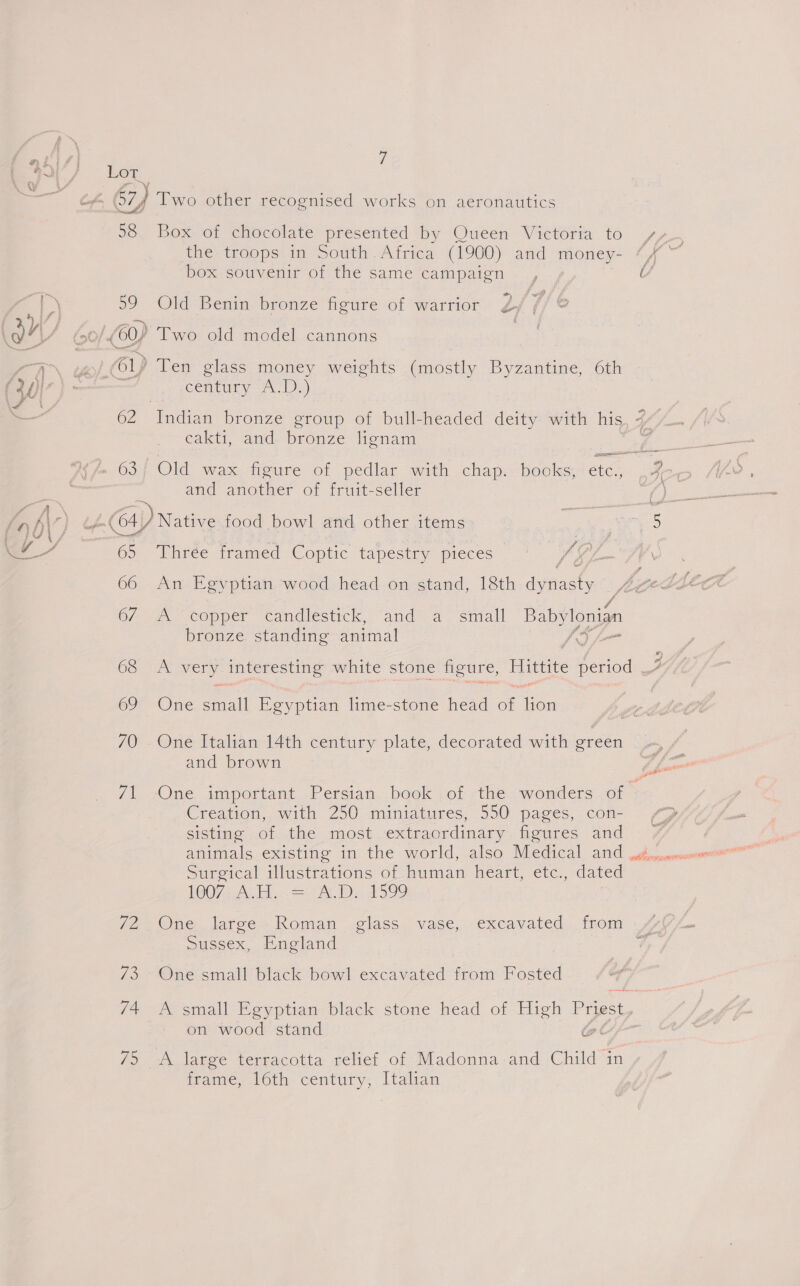 7
LOT
57 Two other recognised works on aeronautics
58 Box of chocolate presented by Queen Victoria to
the troops in South Africa (1900) and money-
box souvenir of the same campaign
59 Old Benin bronze figure of warrior
60 Two old model cannons
61 Ten glass money weights (mostly Byzantine, 6th
century A.D.)
62 Indian bronze group of bull-headed deity with his
cakti, and bronze lignam
63 Old wax figure of pedlar with chap. books, etc.,
and another of fruit-seller
64 Native food bowl and other items 5
65 Three framed Coptic tapestry pieces
66 An Egyptian wood head on stand, 18th dynasty
67 A copper candlestick, and a small Babylonian
bronze standing animal
68 A very interesting white stone figure, Hittite period
69 One small Egyptian lime-stone head of lion
70 One Italian 14th century plate, decorated with green
and brown
71 One important Persian book of the wonders of
Creation, with 250 miniatures, 550 pages, con-
sisting of the most extraordinary figures and
animals existing in the world, also Medical and
Surgical illustrations of human heart, etc., dated
1007 A.H. = A.D. 1599
72 One large Roman glass vase, excavated from
Sussex, England
73 One small black bowl excavated from Fosted
74 A small Egyptian black stone head of High Priest,
on wood stand
75 A large terracotta relief of Madonna and Child in
frame, 16th century, Italian